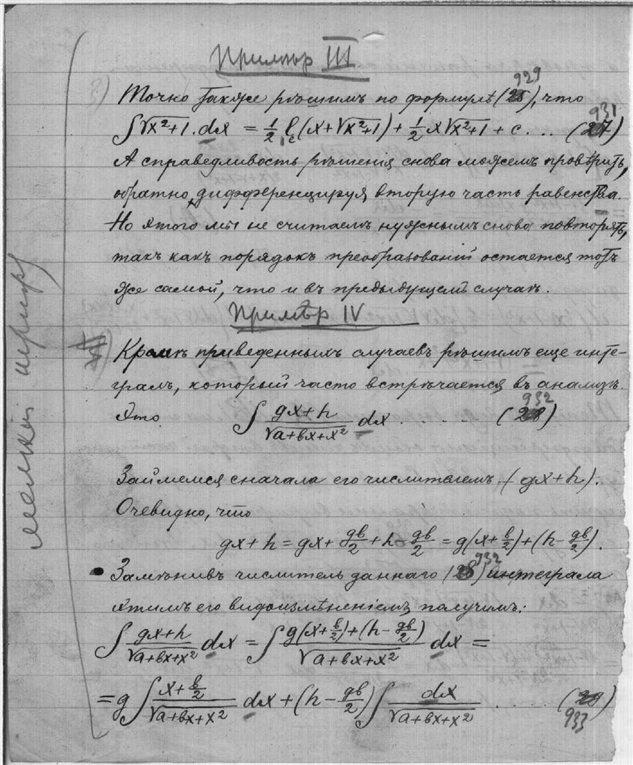 Примѣръ III
3) Точно также рѣшимъ по формулѣ (929), что
∫√x²+1 . dx = ½ ℓ (x+√x²+1) + ½ x√x²+1 + c ... (931)
А справедливость рѣшенія снова можемъ провѣрить,
обратно дифференцируя вторую часть равенства.
Но этого мы не считаемъ нужнымъ снова повторять,
такъ какъ порядокъ преобразованій остается тотъ
же самой, что и въ предыдущемъ случаѣ.
Примѣръ IV
Кромѣ приведенныхъ случаевъ рѣшимъ еще инте-
гралъ, который часто встрѣчается въ анализѣ.
Это ∫ gx+h / √a+bx+x² dx ....... (932)
Займемся сначала его числителемъ (gx+h).
Очевидно, что
gx+h = gx + gb/2 + h - gb/2 = g(x+b/2) + (h - gb/2).
Замѣнивъ числитель даннаго (932) интеграла
этимъ его видоизмѣненіемъ получимъ:
∫ gx+h / √a+bx+x² dx = ∫ g(x+b/2)+(h-gb/2) / √a+bx+x² dx =
= g ∫ x+b/2 / √a+bx+x² dx + (h - gb/2) ∫ dx / √a+bx+x² ..... (933)
мелкій шрифтъ